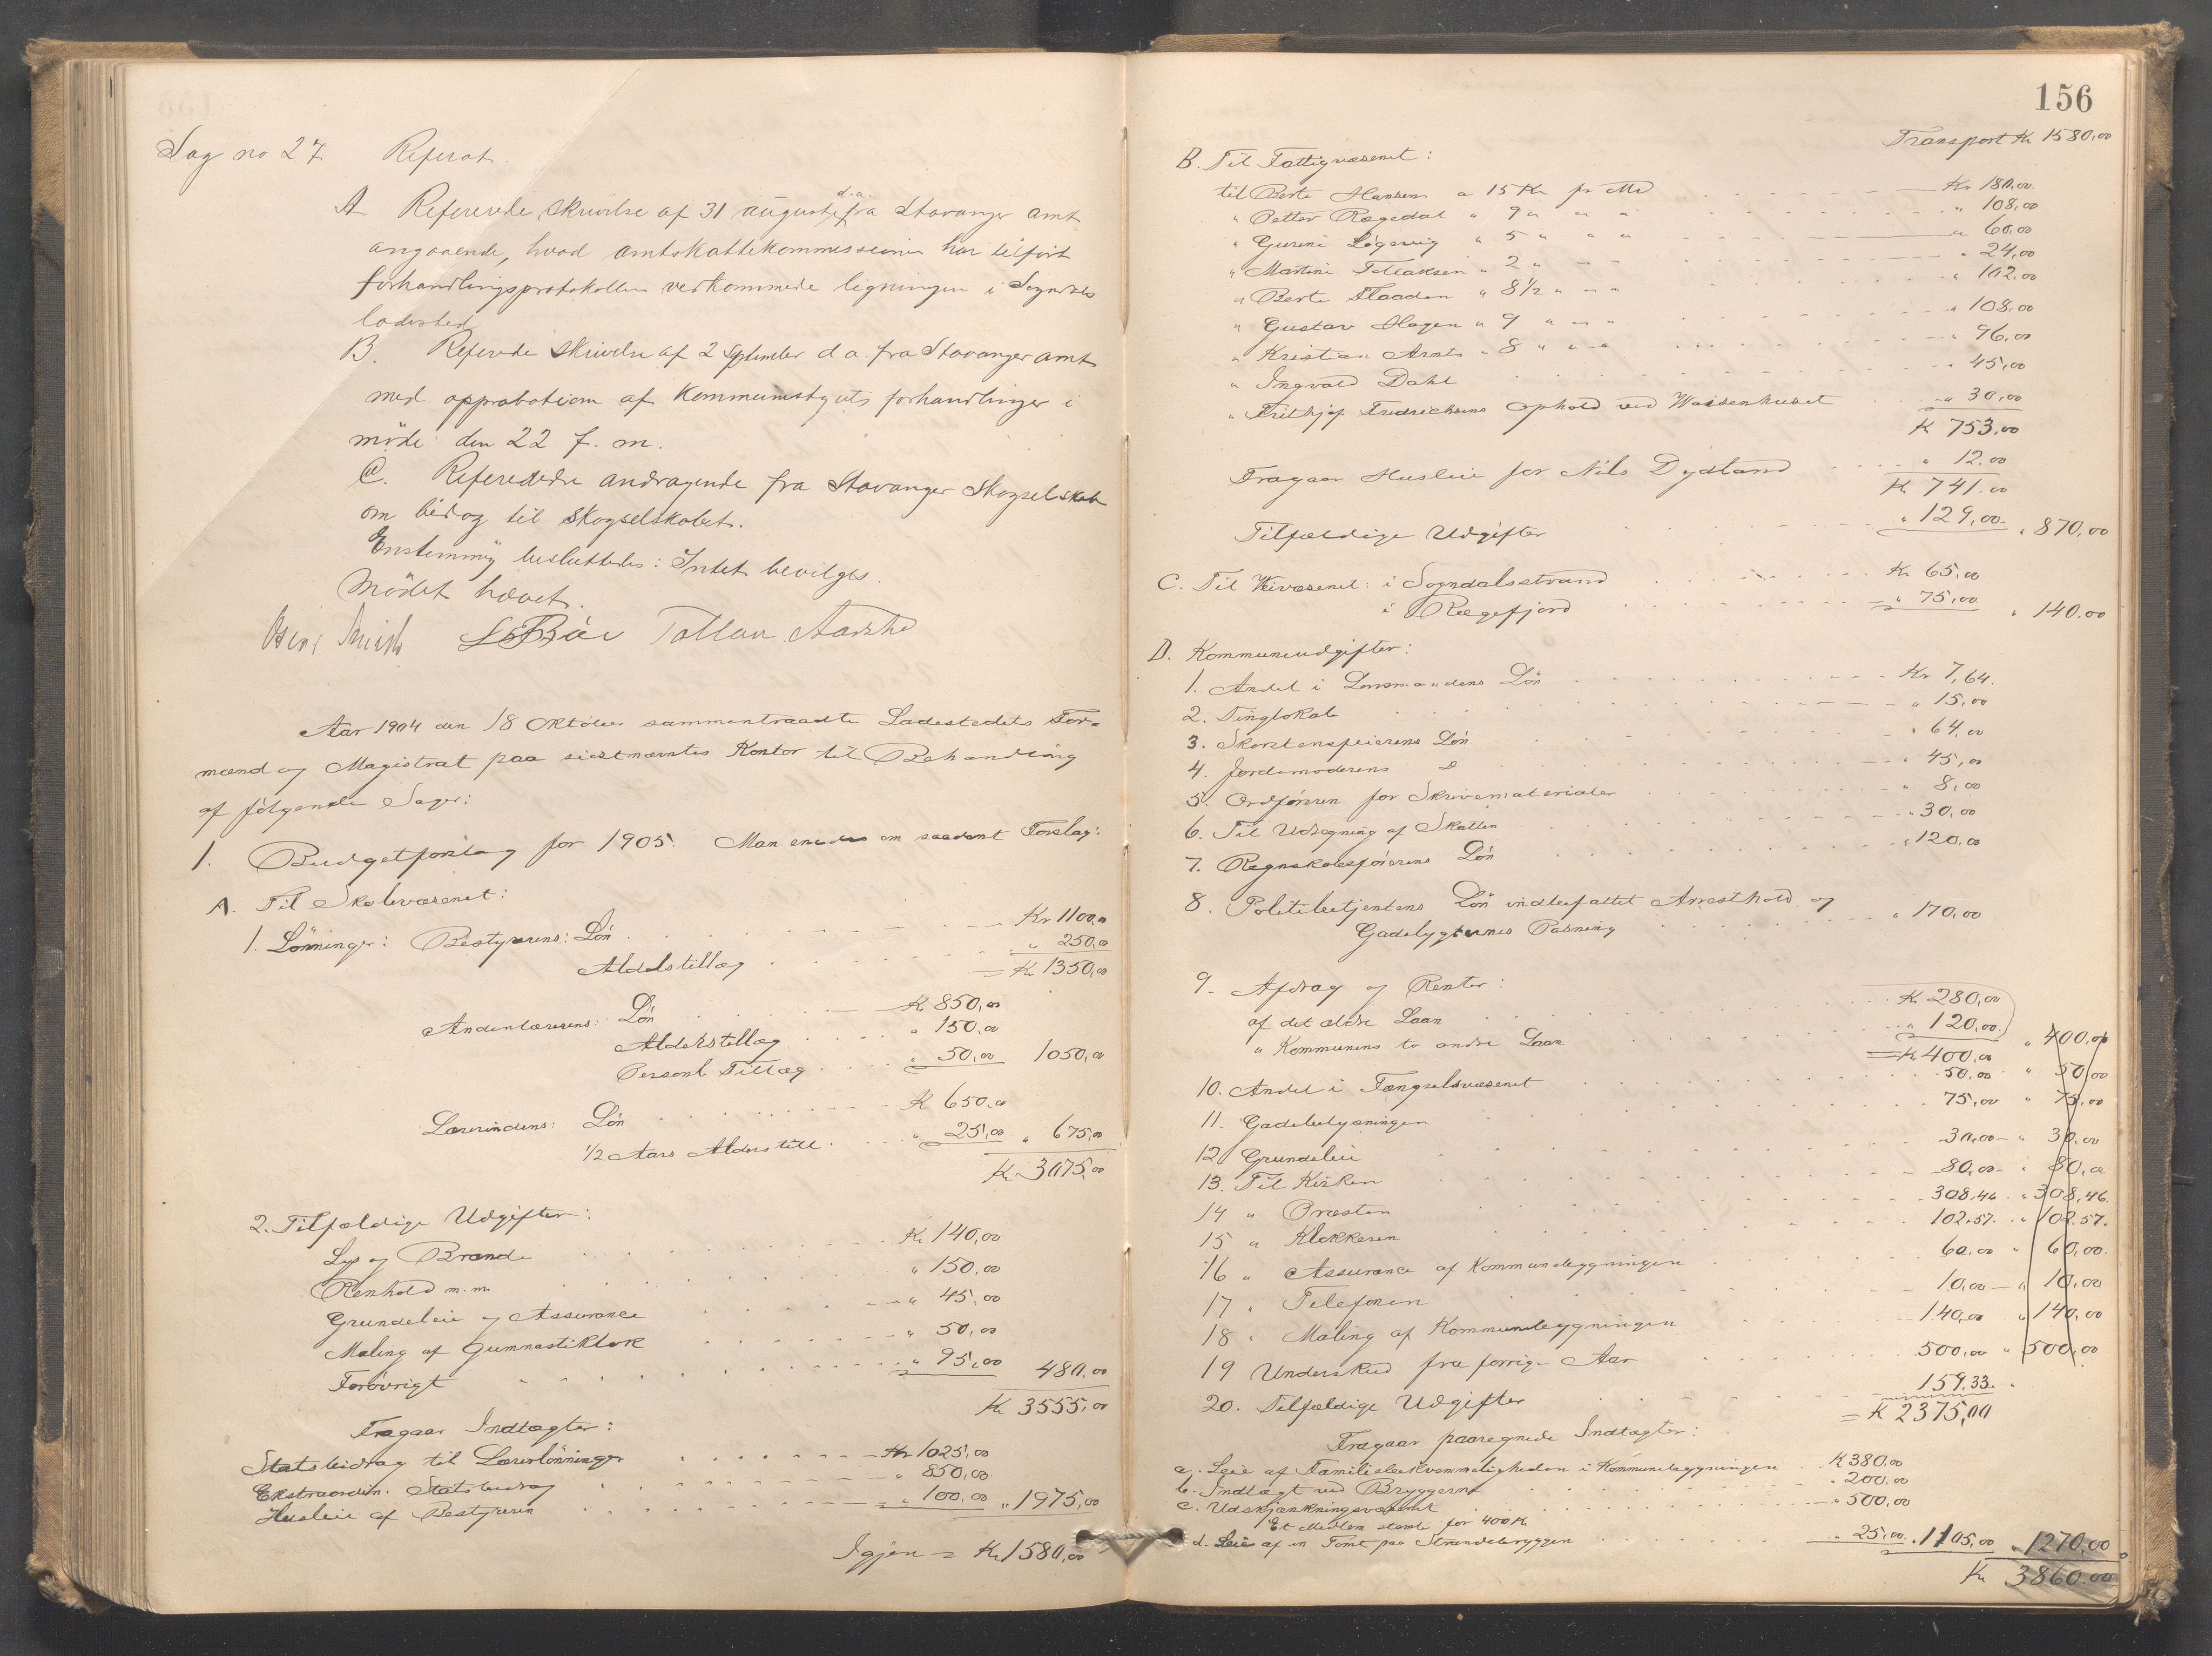 Sag no 27 Referat.
A. Refererede skrivelse af 31 august d.a. fra Stavanger amt
angaaende, hvad amtsskattekommissionen har tilført
forhandlingsprotokollen vedkommende ligningen i Sogndals
ladested
B. Referede skrivelse af 2 September d a. fra Stavanger amt
med approbation af Kommunestyrets forhandlinger i
møde den 22 f. m.
C. Refereredes andragende fra Stavanger Skogselskab
om bidrag til Skogselskabet.
Enstemmig besluttedes: Intet bevilges.
Mødet hævet.
Tollau Aarstad
Aar 1904 den 18 Oktober sammentraadte Ladestedets For-
mænd og Magistrat paa sidstnævntes Kontor til Behandling
af følgende Sager:
1. Budgetforslag for 1905. Man enedes om saadant Forslag:
A. Til Skolevæsenet:
1. Lønninger: Bestyrerens: Løn Kr 1100,00
Alderstillæg " 250,00
= Kr 1350,00
Andenlærerens: Løn Kr 850,00
Alderstillæg " 150,00
Personl. Tillæg " 50,00 1050,00
Lærerindens: Løn Kr 650,00
1/2 Aars Alderstill. " 25,00 " 675,00
Kr 3075,00
2. Tilfældige Udgifter:
Lys og Brænde Kr 140,00
Renhold m.m. " 150,00
Grundeleie og Assurance " 45,00
Maling af Gumnastiklok " 50,00
Forøvrigt " 95,00 480,00
Kr 3555,00
Fragaar Indtægter:
Statsbidrag til Lærerlønninger Kr 1025,00
Ekstraordin. Statsbidrag " 850,00
Husleie af Bestyreren " 100,00 " 1975,00
Igjen = Kr 1580,00
156
Transport Kr 1580,00
B. Til Fattigvæsenet:
til Berte Hansen a 15 Kr pr Md Kr 180,00
" Petter Rægedal " 9 " " " " 108,00
" Gurine Løgevig " 5 " " " " 60,00
" Martine Tollaksen " 2 " " " " 24,00
" Berte Flaaden " 8 1/2 " " " " 102,00
" Gustav Hagen " 9 " " " " 108,00
" Kristian " 8 " " " " 96,00
" Ingvald Dahl " 45,00
" Frithjof Fredricksens Ophold ved Waisenhuset " 30,00
Kr 753,00
Fragaar Husleie for Nils Dydland " 12,00
Kr 741,00
Tilfældige Udgifter " 129,00 " 870,00
C. Til Veivæsenet: i Sogndalsstrand Kr 65,00
i Rægefjord " 75,00 " 140,00
D. Kommuneudgifter:
1. Andel i Lensmandens Løn Kr 7,64.
2. Tinglokale " 15,00
3. Skorstensfeierens Løn " 64,00
4. Jordemoderens D " 45,00
5. Ordføreren for Skrivematerialer " 8,00
6. Til Udregning af Skatten " 30,00
7. Regnskabsførerens Løn " 120,00
8. Politibetjentens Løn indbefattet Arresthold og
Gadelygternes Pasning " 170,00
9. Afdrag og Renter:
af det ældre Laan Kr 280,00
" Kommunens to andre Laan " 120,00
= Kr 400,00 " 400,00
10. Andel i Fængselsvæsenet 50,00 " 50,00
11. Gadebelysningen 75,00 " 75,00
12. Grundeleie 30,00 " 30,00
13. Til Kirken 80,00 " 80,00
14 " Præsten 308,46 " 308,46.
15 " Klokkeren 102,57. " 102,57.
16 " Assurance af Kommunebygningen 60,00 " 60,00.
17 " Telefonen 10,00 " 10,00
18 " Maling af Kommunebygningen 140,00 " 140,00
19 Underskud fra forrige Aar 500,00 " 500,00
20. Tilfældige Udgifter 159,33.
= Kr 2375,00
Fragaar paaregnede Indtægter:
a. Leie af Familiebekvemmeligheden i Kommunebygningen Kr 380,00
b. Indtægt ved Bryggerne " 200,00
c. Udskjænkningsvæsenet " 500,00
Et Medlem stemte for 400 Kr
d. Leie af en Tomt paa Strandebryggen " 25,00 " 1105,00 " 1270,00
Kr 3860,00